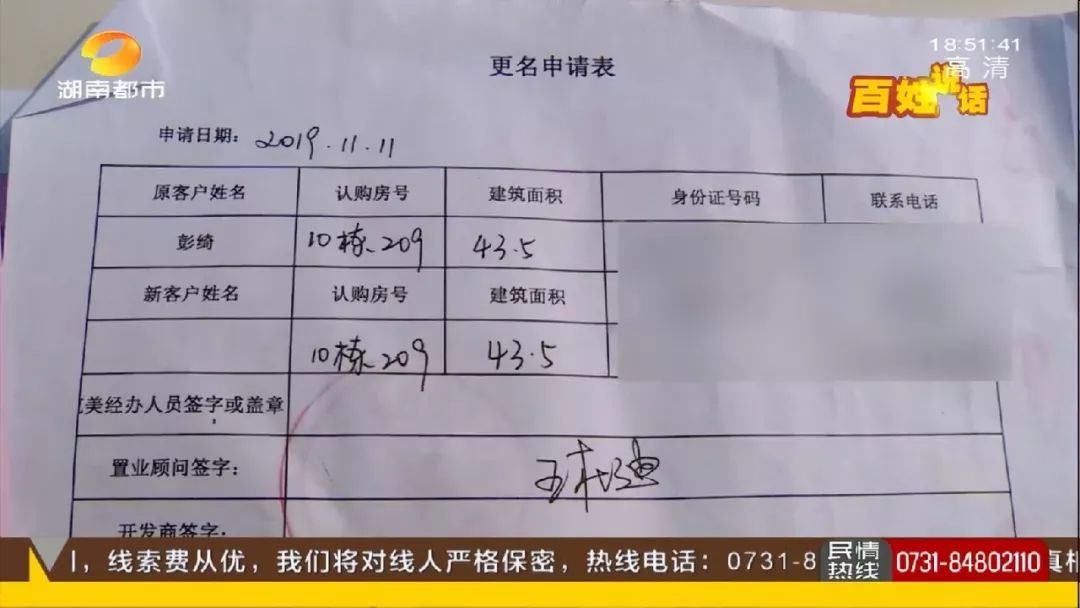 18:51:41
高清
湖南都市
百姓说话
更名申请表
申请日期: 2019.11.11
原客户姓名 认购房号 建筑面积 身份证号码 联系电话
彭绮 10栋.209 43.5
新客户姓名 认购房号 建筑面积
10栋.209 43.5
美经办人员签字或盖章
置业顾问签字:
开发商签字:
，线索费从优，我们将对线人严格保密，热线电话：0731-8
民情热线 0731-84802110
真相